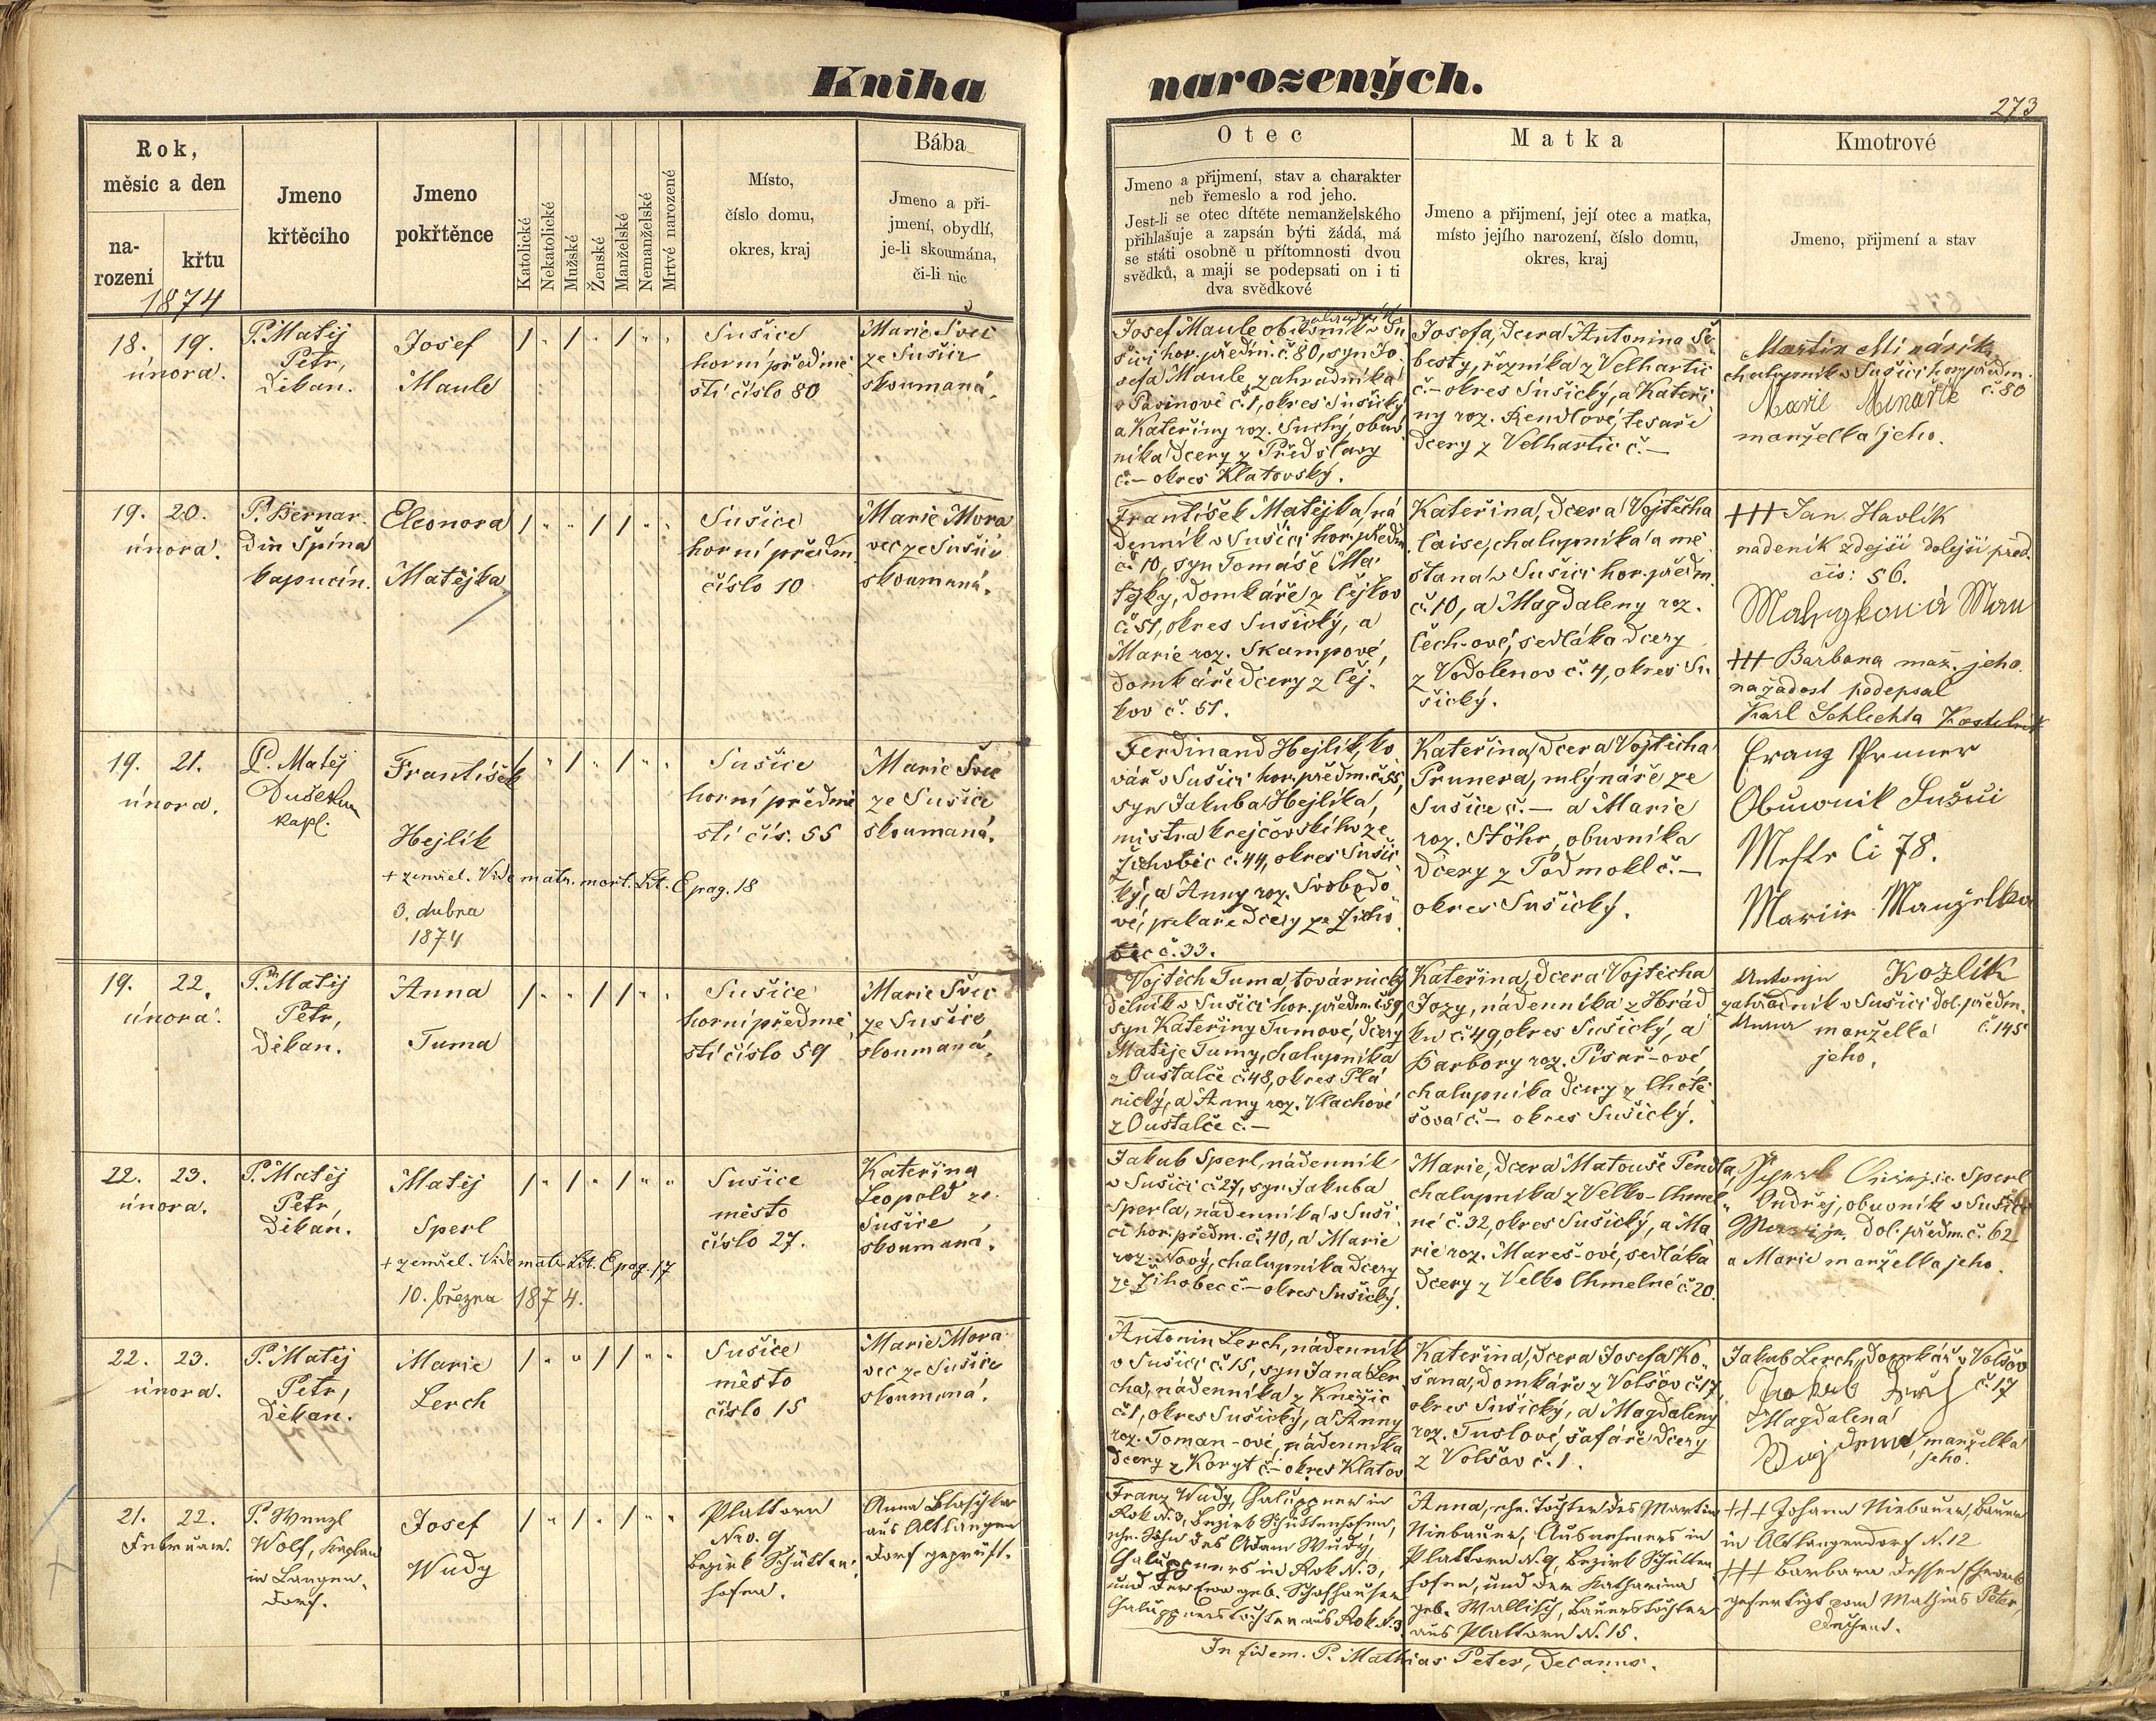 Kniha narozených.
273
Rok,
měsíc a den
na-
rození
křtu
1874
Jmeno
křtěciho
Jmeno
pokřtěnce
Katolické
Nekatolické
Mužské
Ženské
Manželské
Nemanželské
Mrtvé narozené
Místo,
číslo domu,
okres, kraj
Bába
Jmeno a při-
jmení, obydlí,
je-li skoumána,
či-li nic
Otec
Jmeno a přijmení, stav a charakter
neb řemeslo a rod jeho.
Jest-li se otec dítěte nemanželského
přihlašuje a zapsán býti žádá, má
se státi osobně u přítomnosti dvou
svědků, a mají se podepsati on i ti
dva svědkové
Matka
Jmeno a přijmení, její otec a matka,
místo jejího narození, číslo domu,
okres, kraj
Kmotrové
Jmeno, přijmení a stav
18. 19.
února.
P. Matěj
Petr,
Děkan.
Josef
Maule
Sušice
horní předmě
stí číslo 80
Marie Švec
ze Sušice
skoumaná.
Josef Maule obuvník v Su
šici hor. předm. č. 80, syn Jo
sefa Maule, zahradníka
č. 1, okres Sušický
a Kateřiny roz. Suchý, obuv
níka dcery z Předslavy
č. – okres Klatovský.
Josefa, dcera Antonina Še
besty, řezníka z Velhartic
č. – okres Sušický, a Kateři
ny roz. Rendlové, tesaře
dcery z Velhartic č. –
Martin Minařík
chalupník v Sušici hor. předm.
č. 80
Marie Minařik
manželka jeho.
19. 20.
února.
P. Bernar
din Špína
kapucín.
Eleonora
Matějka
Sušice
horní předm.
číslo 10
Marie Mora
vec ze Sušice
skoumaná.
František Matějka, ná
denník v Sušici hor. předm.
č. 10, syn Tomáše Ma
tějky, domkáře z Čejkov
č. 51, okres Sušický, a
Marie roz. Skampové,
domkáře dcery z Čej
kov č. 51.
Kateřina, dcera Vojtěcha
Caise, chalupníka a mě
šťana v Sušici hor. předm.
č. 10, a Magdaleny roz.
Čech-ové, sedláka dcery
z Vodolenov č. 4, okres Su
šický.
+++ Jan Havlík
nadeník zdejší dolejší před.
čis: 56.
+++ Barbora maž. jeho.
na žádost podepsal
Karl Schlechta Kostelník
19. 21.
února.
P. Matěj
Dušek
kapl.
František
Hejlík
+ zemřel. Vide matr. mort. Lit. E pag. 18
3. dubna
1874
Sušice
horní předmě
stí čís. 55
Marie Švec
ze Sušice
skoumaná.
Ferdinand Hejlík, ko
vář v Sušici hor. předm. č. 55,
syn Jakuba Hejlíka,
mistra krejčovského ze
Žichobic č. 44, okres Sušic
ký, a Anny roz. Svobodo
vé, pekaře dcery ze Žicho
bec č. 33.
Kateřina, dcera Vojtěcha
Prunera, mlynáře ze
Sušice č. – a Marie
roz. Stöhr, obuvníka
dcery z Podmokl č. –
okres Sušický.
Franz Pruner
Obuwnik Sušici
Či 78.
Marie Manželka
19. 22.
února.
P. Matěj
Petr,
Děkan.
Anna
Tuma
Sušice
horní předmě
stí číslo 59
Marie Švec
ze Sušice
skoumaná.
Vojtěch Tuma, továrnický
dělník v Sušici hor. předm. č. 59,
syn Kateřiny Tumové, dcery
Matěje Tumy, chalupníka
z Oustalče č. 48, okres Plá
nický, a Anny roz. Vlachové
z Oustalče č. –
Kateřina, dcera Vojtěcha
Jozy, nádenníka z Hrád
ku č. 49, okres Sušický, a
Barbory roz. Písař-ové,
chalupníka dcery z Lhotě
šova č. – okres Sušický.
Antonin Kozlík
zahradník v Sušici dol. předm.
č. 145
Anna manželka
jeho.
22. 23.
února.
P. Matěj
Petr,
Děkan.
Matěj
Sperl
+ zemřel. Vide matr. Lit. E pag. 17
10. března 1874.
Sušice
město
číslo 27.
Kateřina
Leopold ze
Sušice
skoumaná.
Jakub Sperl, nádenník
v Sušici č. 27, syn Jakuba
Sperla, nádenníka v Suši
ci hor. předm. č. 40, a Marie
roz. Nový, chalupníka dcery
ze Žihobec č. – okres Sušický.
Marie, dcera Matouše Pendla,
chalupníka z Velko-Chmel
né č. 32, okres Sušický, a Ma
rie roz. Mareš-ové, sedláka
dcery z Velko Chmelné č. 20.
Sperl
Ondřej, obuvník v Sušici
dol. předm. č. 62
a Marie manželka jeho.
22. 23.
února.
P. Matěj
Petr,
Děkan.
Marie
Lerch
Sušice
město
číslo 15
Marie Mora
vec ze Sušice
skoumaná.
Antonin Lerch, nádenník
v Sušici č. 15, syn Jana Ler
cha, nádenníka z Kněžic
č. 1, okres Sušický, a Anny
roz. Toman-ové, nádenníka
dcery z Koryt č. – okres Klatov
Kateřina, dcera Josefa Ko
šana, domkáře z Volšov č. 17,
okres Sušický, a Magdaleny
roz. Tuslové, šafáře dcery
z Volšov č. 1.
Jakub Lerch, domkář z Volšov
č. 17
Jakub
Magdalena
manželka
jeho.
21. 22.
Februar.
P. Wenzl
Wolf, Kaplan
in Langen-
dorf.
Josef
Wudy
Plattorn
Nro. 9
Bezirk Schütten-
hofen.
Anna Blaschko
aus Altlangen
dorf geprüft.
Franz Wudy, Chaluppner in
Rok N. 3, Bezirk Schüttenhofen,
ehe. Sohn des Adam Wudy,
Chaluppners in Rok N. 3,
und der Eva geb. Schafhauser
Chaluppnerstochter aus Rok N. 3.
Anna, ehe. Tochter des Martin
Niebauer, Ausnehmers in
Plattorn N. 9, Bezirk Schütten
hofen, und der Katharina
geb. Wallisch, Bauerstochter
aus Plattorn N. 15.
+++ Johann Niebauer, Bauer
in Altlangendorf N. 12
+++ Barbara dessen Eheweib
gefertigt von Mathias Peter,
Dechant.
In fidem. P. Mathias Peter, Decanus.